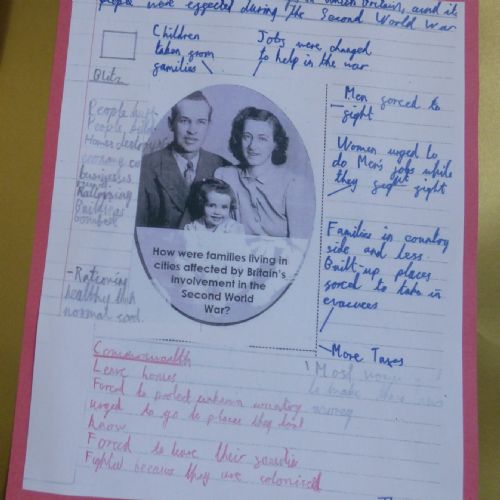 in which Britain, and it
people were expected during the Second World War
Children
taken from
families
Jobs were changed
to help in the war
Blitz
People
People
Homes destroyed
economy
businesses
Rationing
Buildings
bombed
-Rationing
healthy
normal food
How were families living in
cities affected by Britain's
involvement in the
Second World
War?
Men forced to
fight
Women urged to
do Men's jobs while
they fight fight
Families in country
side and less
Built-up places
forced to take in
evacuees
More Taxes
Most
to make
money
Commonwealth
Leave homes
Forced to protect unknown country
urged to go to places they don't
know
Forced to leave their families
Fighted because they are colonised